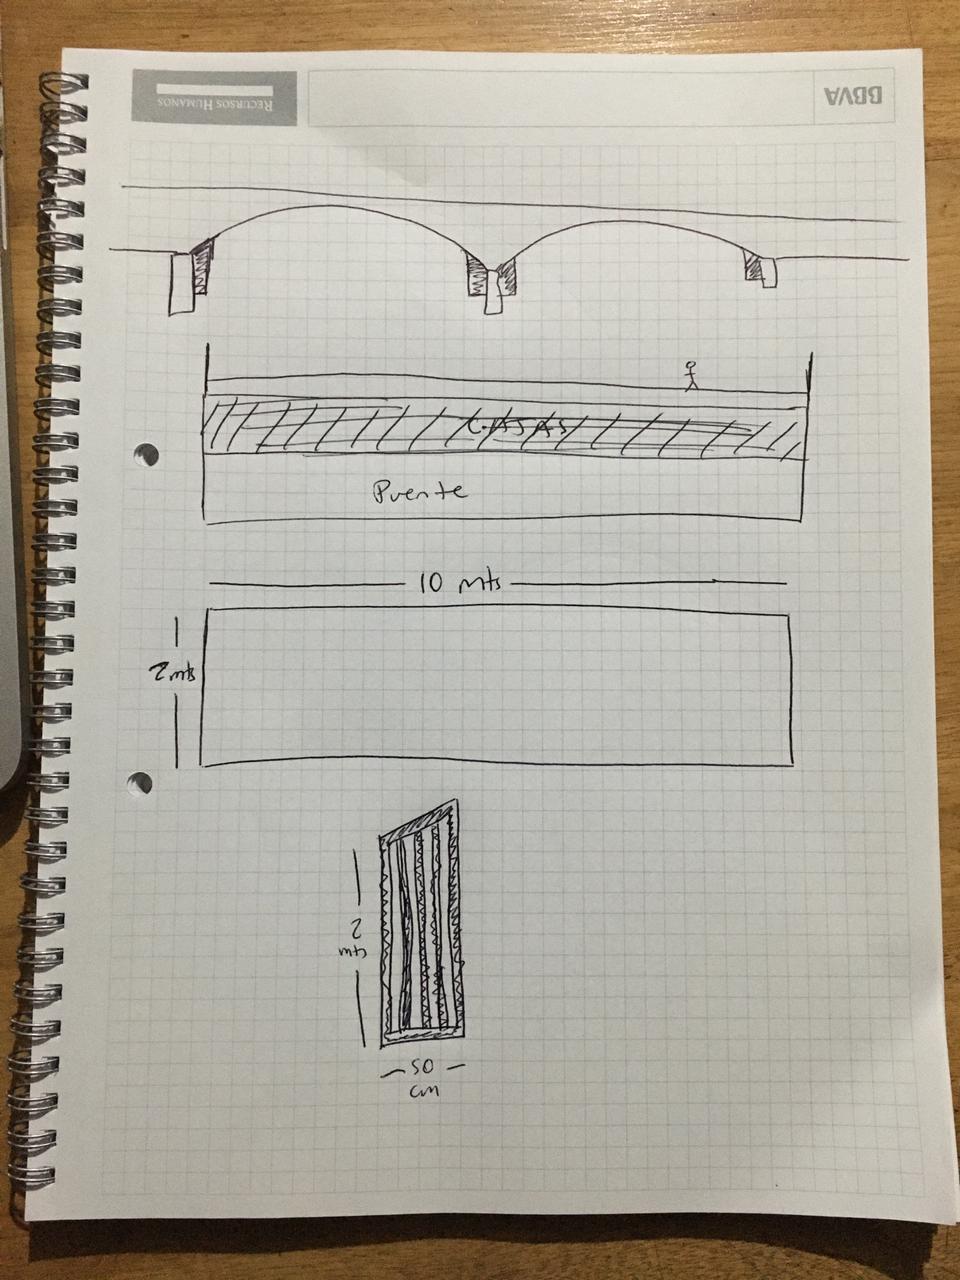 RECURSOS HUMANOS
BBVA
CASAS
Puente
10 mts
2 mts
2
mts
50
cm